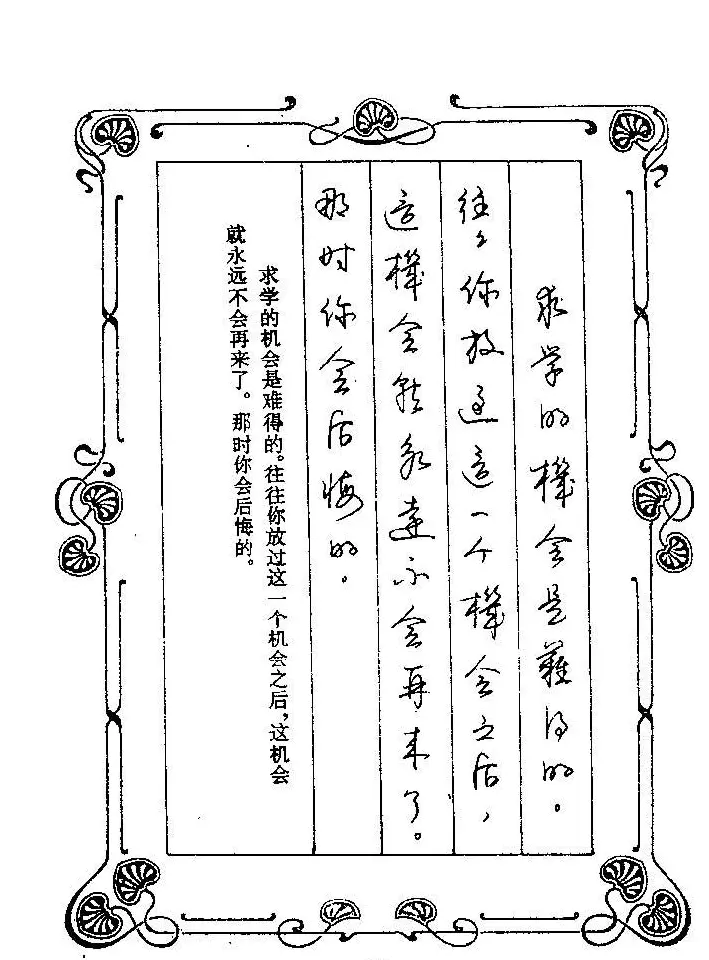 求学的機会是難得的。
往々你放过这一个機会之后，
这機会就永远不会再来了。
那时你会后悔的。
求学的机会是难得的。往往你放过这一个机会之后，这机会
就永远不会再来了。那时你会后悔的。